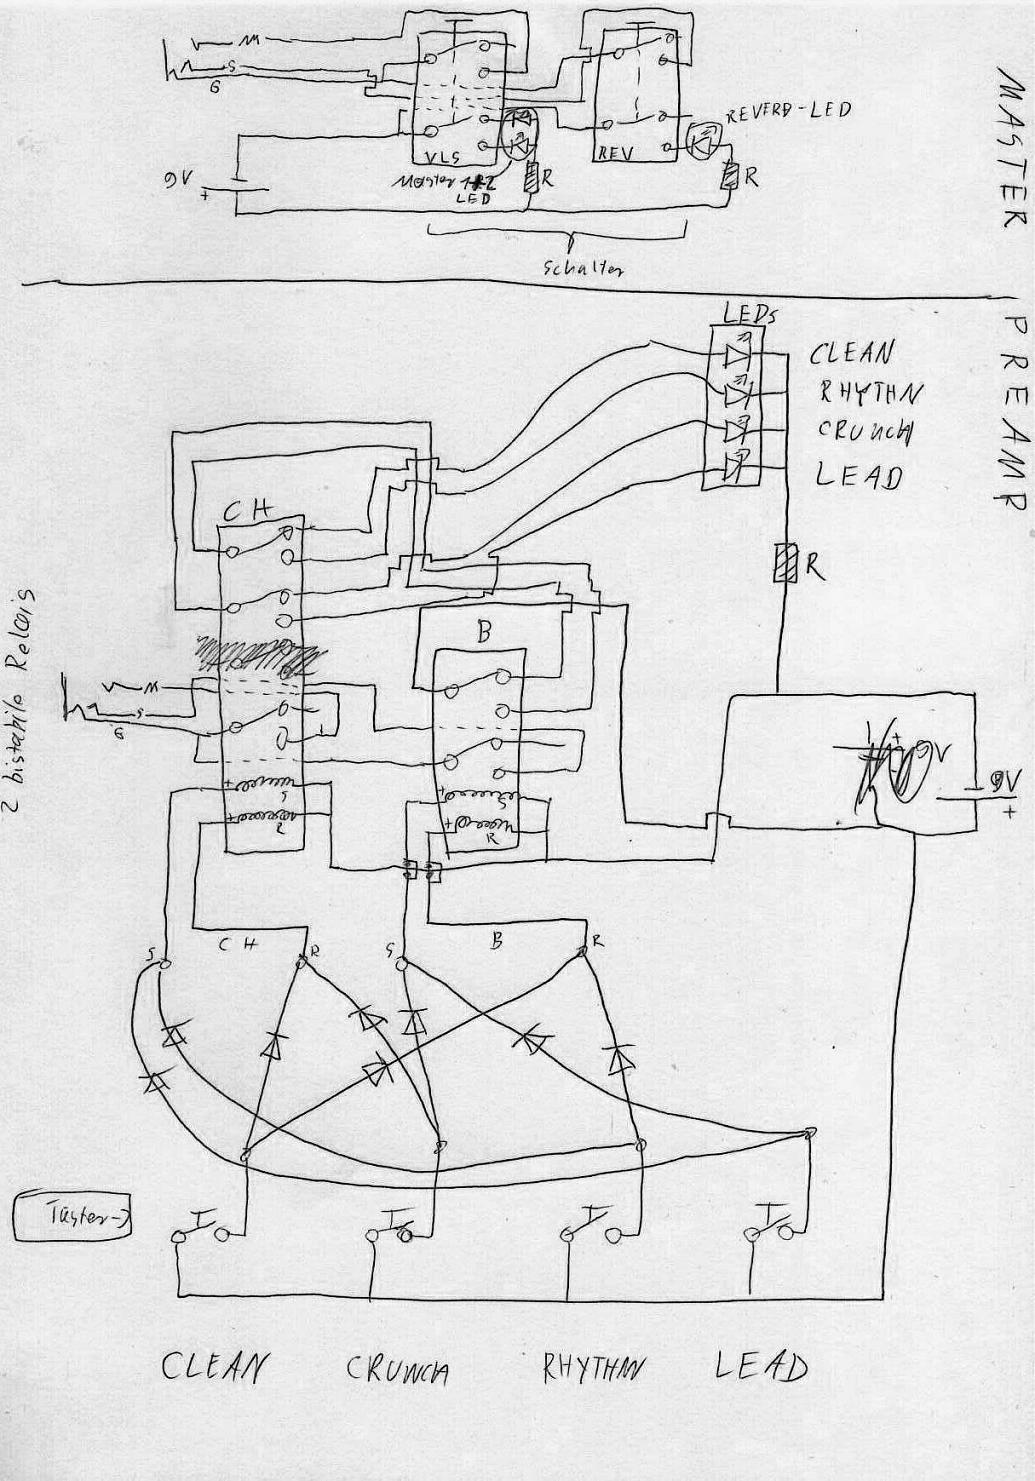 M
S
G
VLS
REV
REVERB-LED
9V
+
Master 1+2
LED
R
R
Schalter
MASTER
PREAMP
LEDs
CLEAN
RHYTHN
CRUNCH
LEAD
R
CH
B
2 bistabile Relais
M
S
G
+
S
+
R
+
S
+
R
+
9V
9V
+
S
CH
R
S
B
R
Taster→
CLEAN
CRUNCH
RHYTHN
LEAD